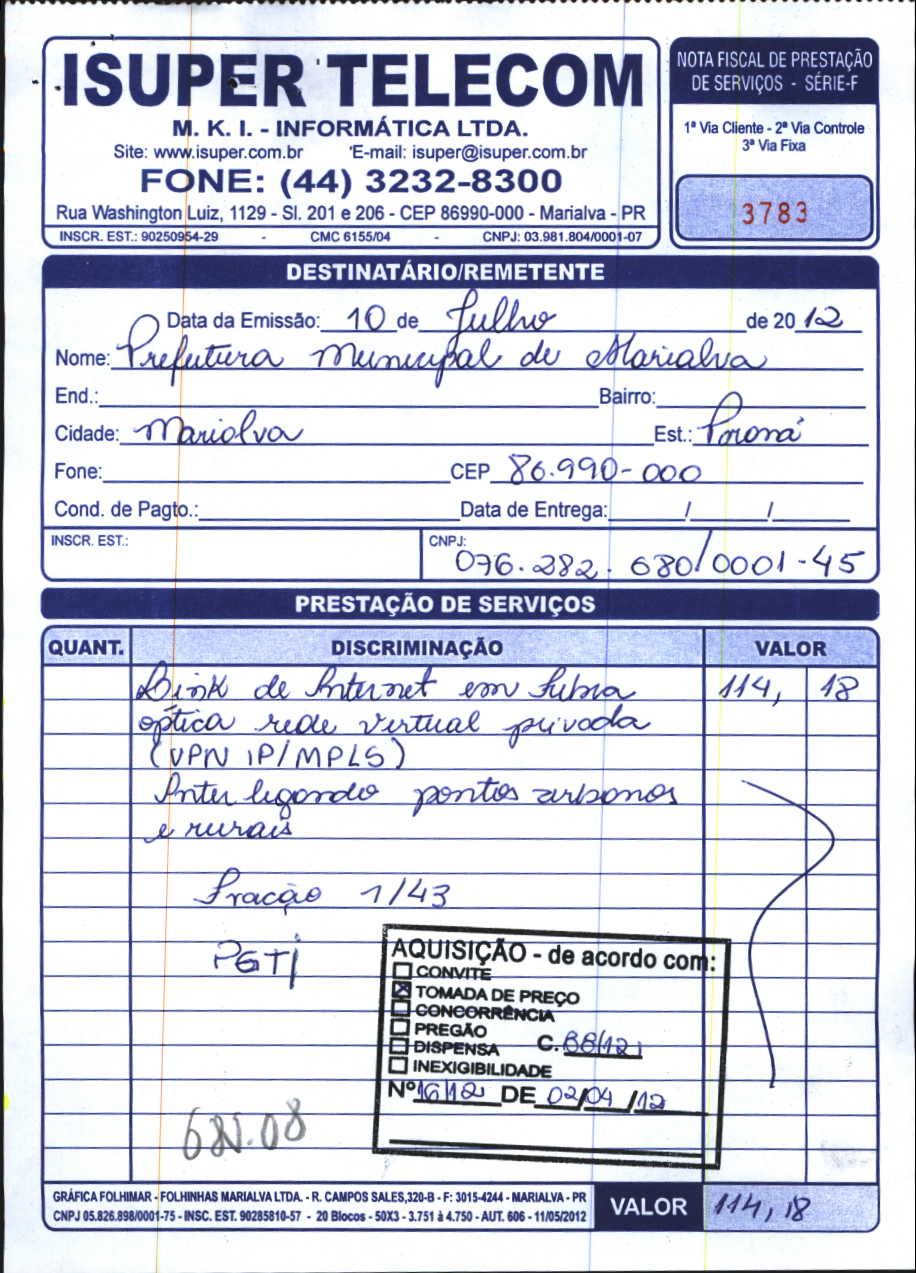 ISUPER TELECOM
M. K. I. - INFORMÁTICA LTDA.
Site: www.isuper.com.br E-mail: isuper@isuper.com.br
FONE: (44) 3232-8300
Rua Washington Luiz, 1129 - Sl. 201 e 206 - CEP 86990-000 - Marialva - PR
INSCR. EST.: 90250954-29 - CMC 6155/04 - CNPJ: 03.981.804/0001-07
NOTA FISCAL DE PRESTAÇÃO
DE SERVIÇOS - SÉRIE-F
1ª Via Cliente - 2ª Via Controle
3ª Via Fixa
3783
DESTINATÁRIO/REMETENTE
Data da Emissão: 10 de Julho de 2012
Nome: Prefeitura Municipal de Marialva
End.: Bairro:
Cidade: Marialva Est.: Paraná
Fone: CEP 86.990-000
Cond. de Pagto.: Data de Entrega: / /
INSCR. EST.: CNPJ:
076.282.680/0001-45
PRESTAÇÃO DE SERVIÇOS
QUANT. DISCRIMINAÇÃO VALOR
Link de Internet em Fibra 114,18
óptica rede virtual privada
(VPN IP/MPLS)
Interligando pontos urbanos
e rurais
Fração 1/43
PGTI
AQUISIÇÃO - de acordo com:
CONVITE
TOMADA DE PREÇO
CONCORRÊNCIA
PREGÃO
DISPENSA C. 68/12
INEXIGIBILIDADE
Nº 16/12 DE 02/04/12
GRÁFICA FOLHIMAR - FOLHINHAS MARIALVA LTDA. - R. CAMPOS SALES,320-B - F: 3015-4244 - MARIALVA - PR
CNPJ 05.826.898/0001-75 - INSC. EST. 90285810-57 - 20 Blocos - 50X3 - 3.751 à 4.750 - AUT. 606 - 11/05/2012
VALOR 114,18